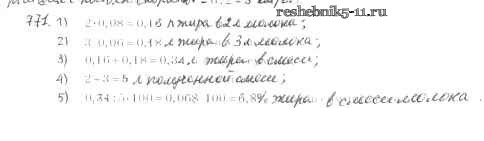 reshebnik5-11.ru
771. 1) 2·0,08=0,16 л жира в 2 л молока;
2) 3·0,06=0,18 л жира в 3 л молока;
3) 0,16+0,18=0,34 л жира в смеси;
4) 2+3=5 л полученной смеси;
5) 0,34:5·100=0,068·100=6,8% жира в смеси молока.